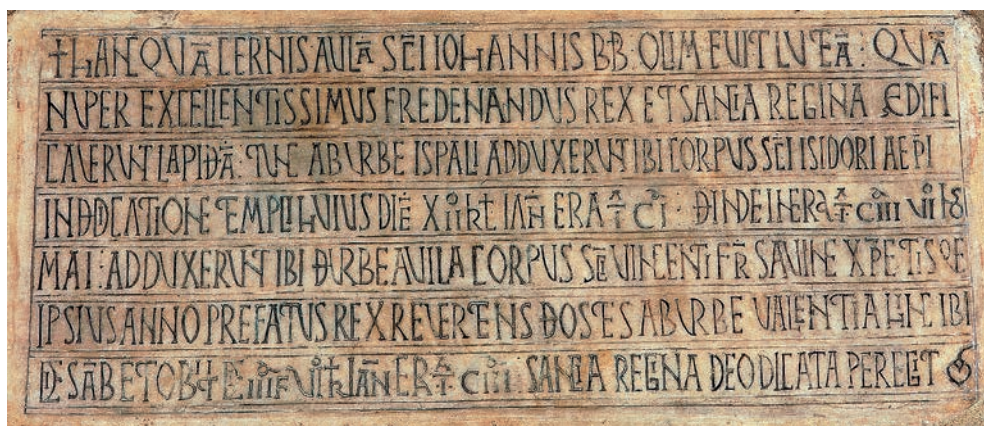 † HANC QUĀ CERNIS AULĀ SC̄I IOHANNIS BB̄ OLIM FUIT LUTEĀ : QUĀ
NUPER EXCELLENTISSIMUS FREDENANDUS REX ET SANCIA REGINA EDIFI
CAVERUNT LAPIDEĀ : TUC̄ AB URBE ISPALI ADDUXERUNT IBI CORPUS SC̄I ISIDORI AEPI
IN DEDICATIONE TEMPLI HUIUS DIĒ XII KL IAN̄ ERA T̂ CI · DEINDE IN ERA T̂ CIII VI ID
MAI : ADDUXERUNT IBI DE URBE AVILA CORPUS SC̄I VINCENTI FR̄ SAVINE XPETISQE
IPSIUS ANNO PREFATUS REX REVERTENS DE OSTES AB URBE VALENTIA HINC IBI
DIE SAB̄ ET OBIIT DIE III F VI KL IAN̄ ERA T̂ CIII SANCIA REGINA DEO DICATA PEREGIT